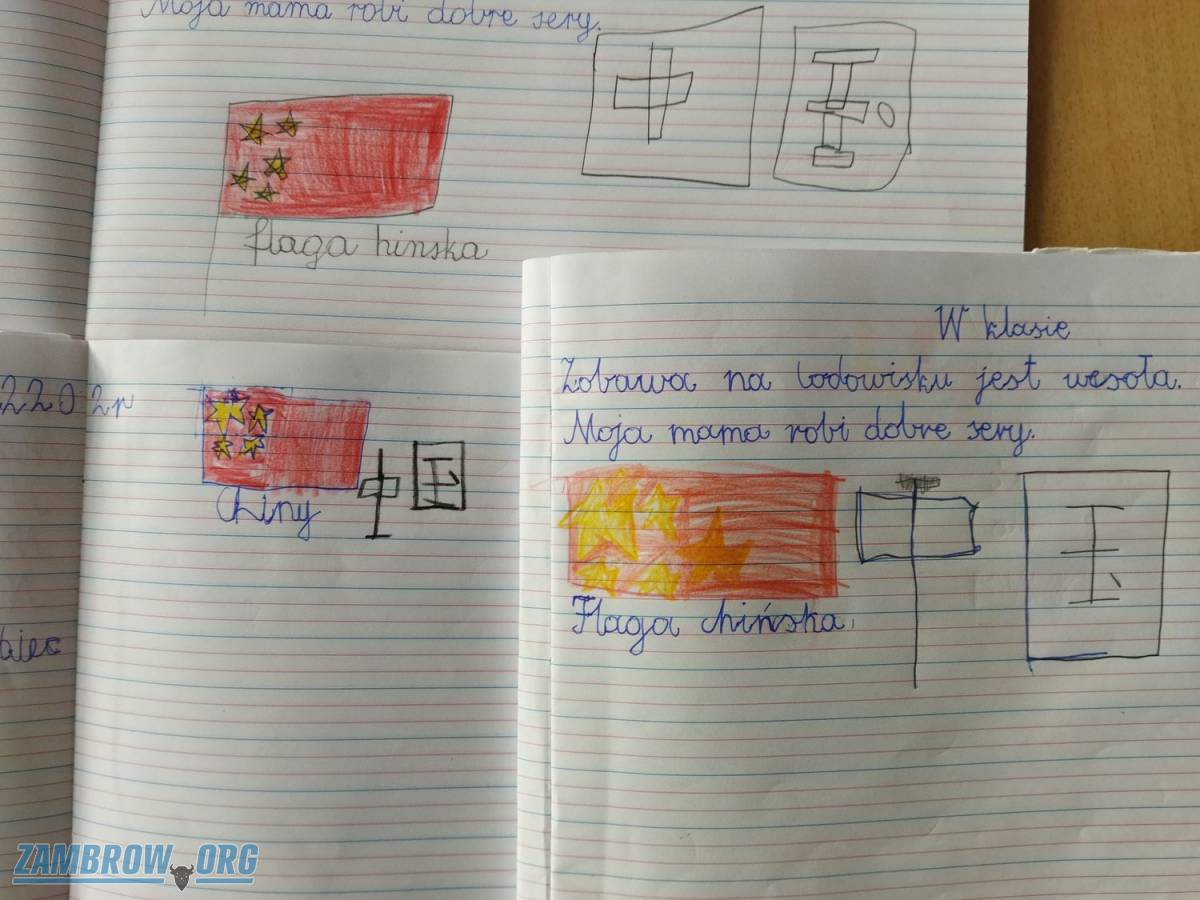 Moja mama robi dobre sery.
中 国
flaga hinska
W klasie
Zobawa na lodowisku jest wesoła.
Moja mama robi dobre sery.
中 国
Flaga chińska.
2202r
中 国
Chiny
ZAMBROW.ORG